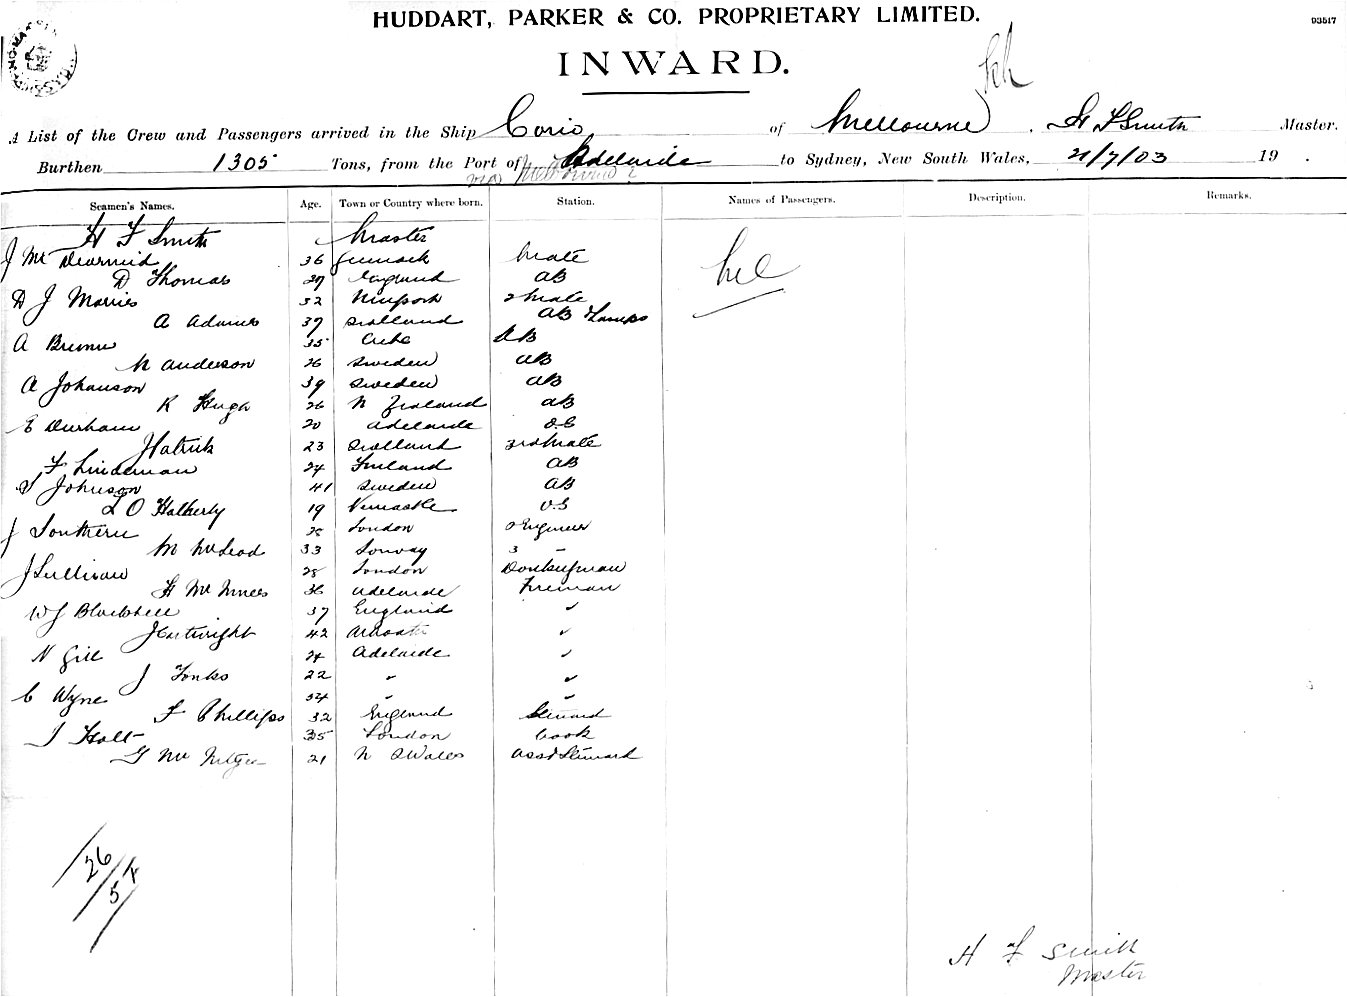 HUDDART, PARKER & CO. PROPRIETARY LIMITED.
93517
INWARD.
A List of the Crew and Passengers arrived in the Ship Corio of Melbourne. H F Smith Master.
Burthen 1305 Tons, from the Port of Adelaide to Sydney, New South Wales, 21/7/03 19 .
via Melbourne
Seamen's Names. Age. Town or Country where born. Station. Names of Passengers. Description. Remarks.
H F Smith Master
J Mc Diarmid 36 Mate
D Thomas 27 England AB
D J Morris 32 Newport 2 Mate
A Adams 37 Scotland AB Lamps
A 35 AB
N Anderson 26 Sweden AB
A Johanson 39 Sweden AB
R Hugh 26 N Zealand AB
E Durham 20 Adelaide OS
J Patrick 23 Scotland 3rd Mate
F Lindeman 24 Finland AB
S Johnson 41 Sweden AB
L O Hallerty 19 Newcastle OS
J Southern 28 London 2 Engineer
M McLeod 33 3 "
J Sullivan 28 London Donkeyman
H Mc Innes 36 Adelaide Fireman
W J Blackhell 37 England "
J Cartwright 42 "
N Gill 24 Adelaide "
J Tonks 22 " "
C Wyne 34 " "
F Phillips 32 England Steward
J Holt 35 London Cook
G Mc 21 N S Wales Asst Steward
nil
26
54
H F Smith
Master